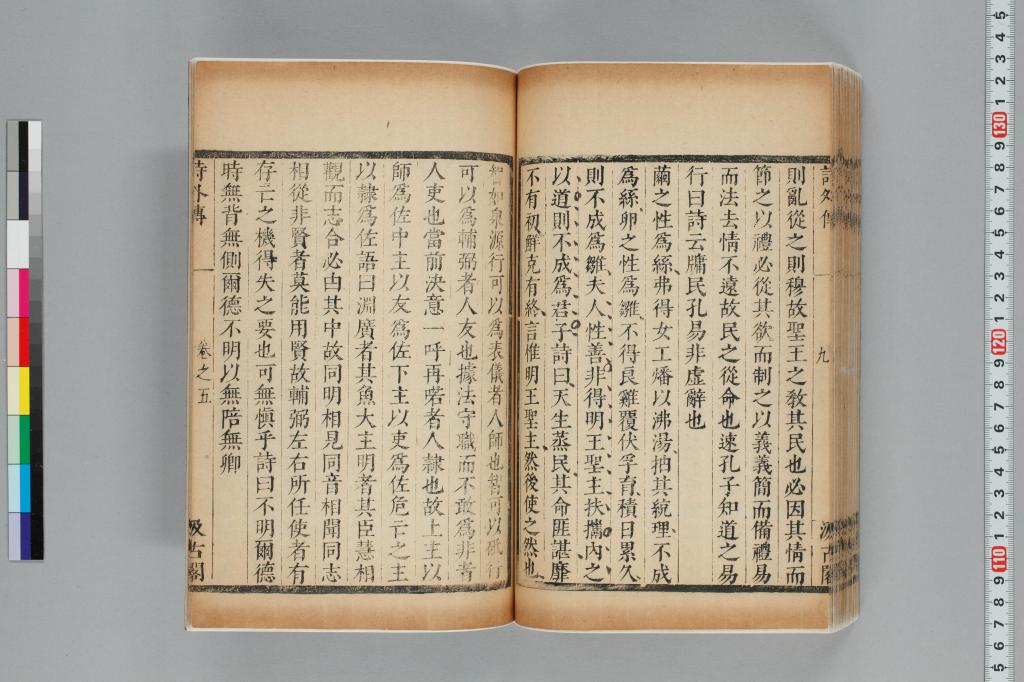 詩外傳
九
汲古閣
則亂從之則穆故聖王之敎其民也必因其情而
節之以禮必從其欲而制之以義義簡而備禮易
而法去情不遠故民之從命也速孔子知道之易
行曰詩云牖民孔易非虛辭也
繭之性爲絲弗得女工燔以沸湯抽其統理不成
爲絲卵之性爲雛不得良雞覆伏孚育積日累久
則不成爲雛夫人性善非得明王聖主扶攜內之
以道則不成爲君子詩曰天生蒸民其命匪諶靡
不有初鮮克有終言惟明王聖主然後使之然也
智如泉源行可以爲表儀者人師也智可以砥行
可以爲輔弼者人友也據法守職而不敢爲非者
人吏也當前決意一呼再喏者人隸也故上主以
師爲佐中主以友爲佐下主以吏爲佐危亡之主
以隸爲佐語曰淵廣者其魚大主明者其臣慧相
觀而志合必由其中故同明相見同音相聞同志
相從非賢者莫能用賢故輔弼左右所任使者有
存亡之機得失之要也可無愼乎詩曰不明爾德
時無背無側爾德不明以無陪無卿
詩外傳
卷之五
汲古閣